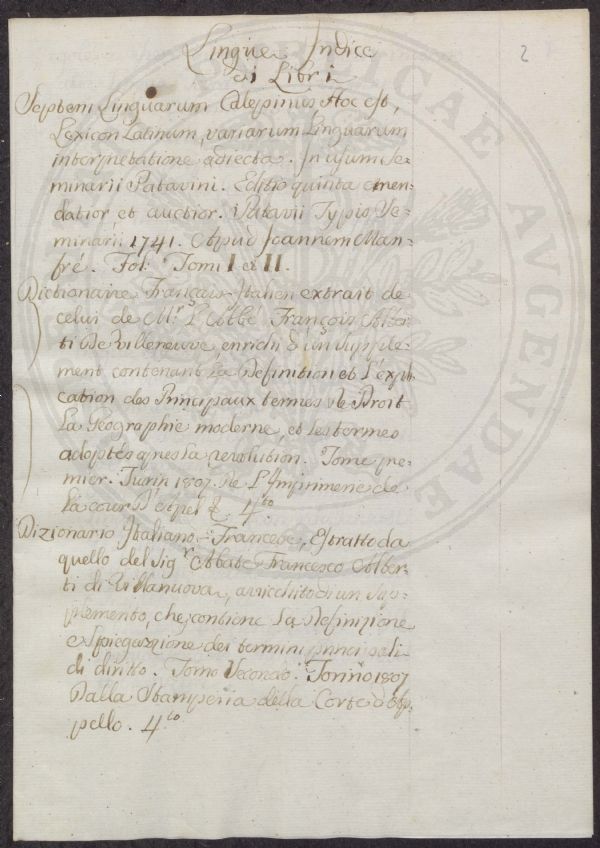 Lingue Indice
di Libri
2
Septem Linguarum Calepinus Hoc est,
Lexicon Latinum, variarum Linguarum
interpretatione adiecta. In usum Se=
minarii Patavini. Editio quinta emen=
datior et auctior. Patavii Typis Se=
minarii 1741. Apud Joannem Man=
fré. Fol: Tomi I et II.
Dictionaire Français-Italien extrait de
celui de Mr. L'Abbé François Alber=
ti De Villeneuve, enrichi d'un Supple=
ment contenant la Definition et L'expli=
cation des Principaux termes de Droit
La Geographie moderne, et les termes
adoptés apres la revolution. Tome pre=
mier. Turin 1807. De L'Imprimerie de
La cour D'Apel 4.to
Dizionario Italiano-Francese, Estratto da
quello del Sigr. Abate Francesco Alber=
ti di Villanuova, arricchito di un Sup=
plemento, che contiene La Definizione
e Spiegazione dei termini principali
di diritto. Tomo Secondo. Torino 1807
Dalla Stamperia della Corte d'Ap=
pello. 4.to
PUBLICAE
AVGENDAE